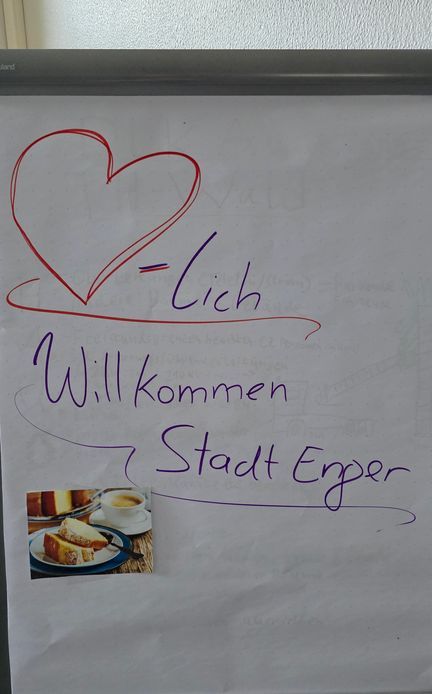 uland
=lich
Willkommen
Stadt Enger